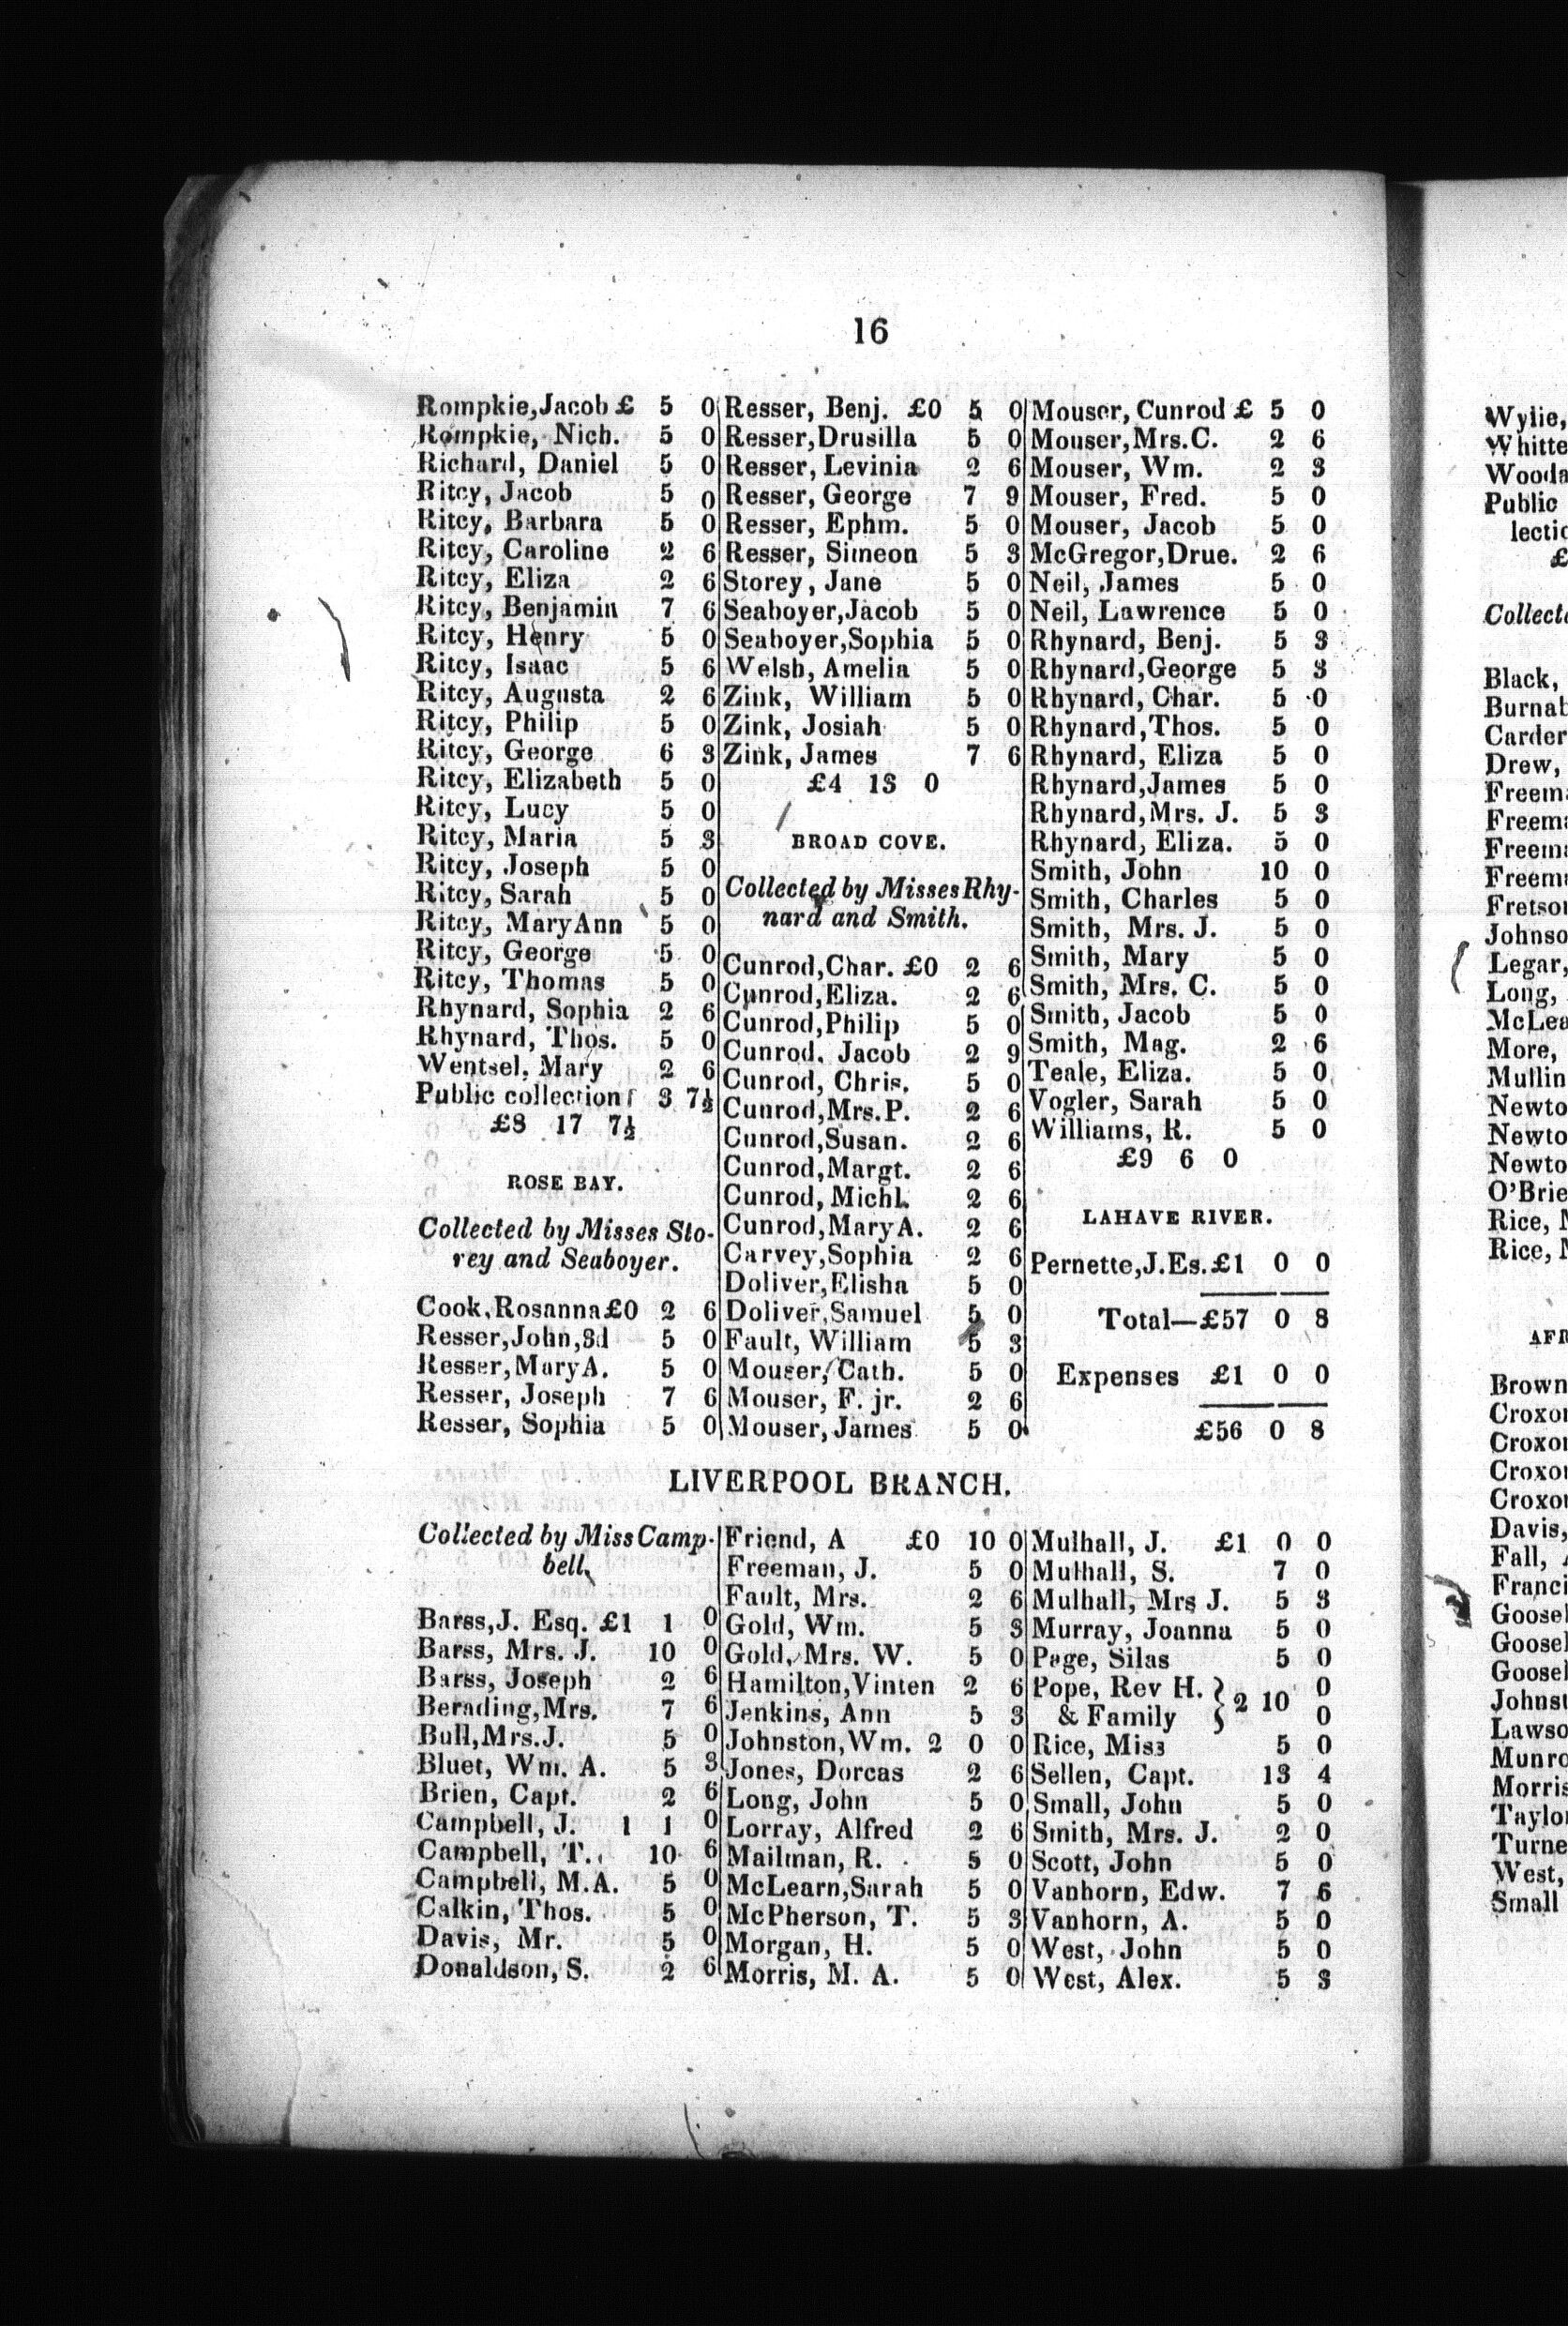 16
Rompkie, Jacob £ 5 0
Rompkie, Nich. 5 0
Richard, Daniel 5 0
Ritcy, Jacob 5 0
Ritcy, Barbara 5 0
Ritcy, Caroline 2 6
Ritcy, Eliza 2 6
Ritcy, Benjamin 7 6
Ritcy, Henry 5 0
Ritcy, Isaac 5 6
Ritcy, Augusta 2 6
Ritcy, Philip 5 0
Ritcy, George 6 3
Ritcy, Elizabeth 5 0
Ritcy, Lucy 5 0
Ritcy, Maria 5 3
Ritcy, Joseph 5 0
Ritcy, Sarah 5 0
Ritcy, Mary Ann 5 0
Ritcy, George 5 0
Ritcy, Thomas 5 0
Rhynard, Sophia 2 6
Rhynard, Thos. 5 0
Wentsel, Mary 2 6
Public collection 3 7½
£8 17 7½
ROSE BAY.
Collected by Misses Sto-
rey and Seaboyer.
Cook, Rosanna £0 2 6
Resser, John, 3d 5 0
Resser, Mary A. 5 0
Resser, Joseph 7 6
Resser, Sophia 5 0
Resser, Benj. £0 5 0
Resser, Drusilla 5 0
Resser, Levinia 2 6
Resser, George 7 9
Resser, Ephm. 5 0
Resser, Simeon 5 3
Storey, Jane 5 0
Seaboyer, Jacob 5 0
Seaboyer, Sophia 5 0
Welsh, Amelia 5 0
Zink, William 5 0
Zink, Josiah 5 0
Zink, James 7 6
£4 13 0
BROAD COVE.
Collected by Misses Rhy-
nard and Smith.
Cunrod, Char. £0 2 6
Cunrod, Eliza. 2 6
Cunrod, Philip 5 0
Cunrod, Jacob 2 9
Cunrod, Chris. 5 0
Cunrod, Mrs. P. 2 6
Cunrod, Susan. 2 6
Cunrod, Margt. 2 6
Cunrod, Michl. 2 6
Cunrod, Mary A. 2 6
Carvey, Sophia 2 6
Doliver, Elisha 5 0
Doliver, Samuel 5 0
Fault, William 5 3
Mouser, Cath. 5 0
Mouser, F. jr. 2 6
Mouser, James 5 0
Mouser, Cunrod £ 5 0
Mouser, Mrs. C. 2 6
Mouser, Wm. 2 3
Mouser, Fred. 5 0
Mouser, Jacob 5 0
McGregor, Drue. 2 6
Neil, James 5 0
Neil, Lawrence 5 0
Rhynard, Benj. 5 3
Rhynard, George 5 3
Rhynard, Char. 5 0
Rhynard, Thos. 5 0
Rhynard, Eliza 5 0
Rhynard, James 5 0
Rhynard, Mrs. J. 5 3
Rhynard, Eliza. 5 0
Smith, John 10 0
Smith, Charles 5 0
Smith, Mrs. J. 5 0
Smith, Mary 5 0
Smith, Mrs. C. 5 0
Smith, Jacob 5 0
Smith, Mag. 2 6
Teale, Eliza. 5 0
Vogler, Sarah 5 0
Williams, R. 5 0
£9 6 0
LAHAVE RIVER.
Pernette, J. Es. £1 0 0
Total—£57 0 8
Expenses £1 0 0
£56 0 8
LIVERPOOL BRANCH.
Collected by Miss Camp-
bell.
Barss, J. Esq. £1 1 0
Barss, Mrs. J. 10 0
Barss, Joseph 2 6
Berading, Mrs. 7 6
Bull, Mrs. J. 5 0
Bluet, Wm. A. 5 3
Brien, Capt. 2 6
Campbell, J. 1 1 0
Campbell, T. 10 6
Campbell, M. A. 5 0
Calkin, Thos. 5 0
Davis, Mr. 5 0
Donaldson, S. 2 6
Friend, A £0 10 0
Freeman, J. 5 0
Fault, Mrs. 2 6
Gold, Wm. 5 3
Gold, Mrs. W. 5 0
Hamilton, Vinten 2 6
Jenkins, Ann 5 3
Johnston, Wm. 2 0 0
Jones, Dorcas 2 6
Long, John 5 0
Lorray, Alfred 2 6
Mailman, R. 5 0
McLearn, Sarah 5 0
McPherson, T. 5 3
Morgan, H. 5 0
Morris, M. A. 5 0
Mulhall, J. £1 0 0
Mulhall, S. 7 0
Mulhall, Mrs J. 5 3
Murray, Joanna 5 0
Page, Silas 5 0
Pope, Rev H. } 2 10 0
& Family 0
Rice, Miss 5 0
Sellen, Capt. 13 4
Small, John 5 0
Smith, Mrs. J. 2 0
Scott, John 5 0
Vanhorn, Edw. 7 6
Vanhorn, A. 5 0
West, John 5 0
West, Alex. 5 3
Wylie,
Whitte
Wooda
Public
lectio
£
Collecte
Black,
Burnab
Carder
Drew,
Freema
Freema
Freema
Freema
Fretson
Johnso
Legar,
Long,
McLea
More,
Mullin
Newto
Newto
Newto
O'Brie
Rice, M
Rice, M
AFR
Brown
Croxon
Croxon
Croxon
Croxon
Davis,
Fall,
Franci
Goosel
Goosel
Goosel
Johnst
Lawso
Munro
Morris
Taylo
Turne
West,
Small